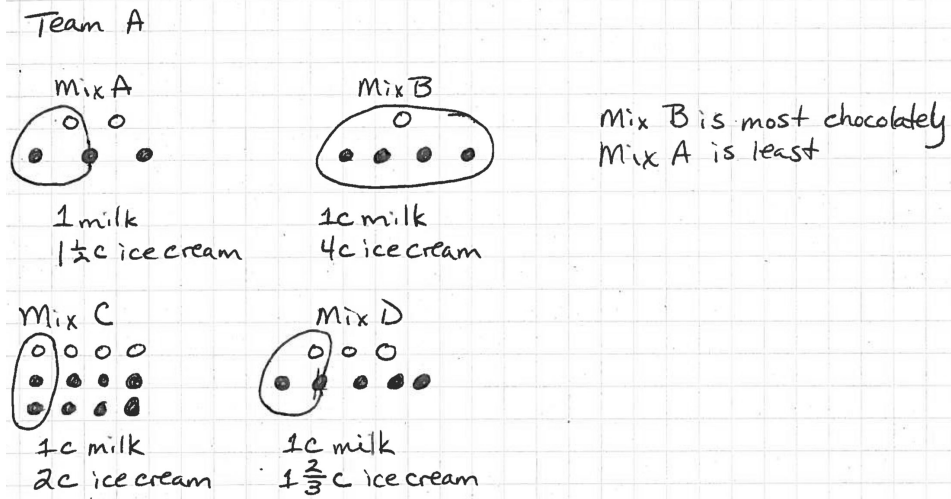 Team A
Mix A
1 milk
1½c ice cream
Mix B
1c milk
4c ice cream
Mix B is most chocolately
Mix A is least
Mix C
1c milk
2c ice cream
Mix D
1c milk
1⅔ c ice cream